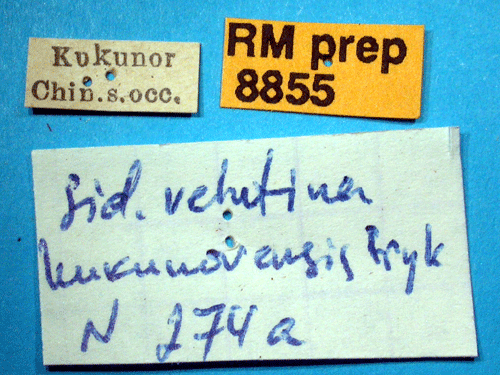 Kukunor
Chin.s.occ.
RM prep
8855
Sid. velutina
kukunorensis Bryk
N 274a